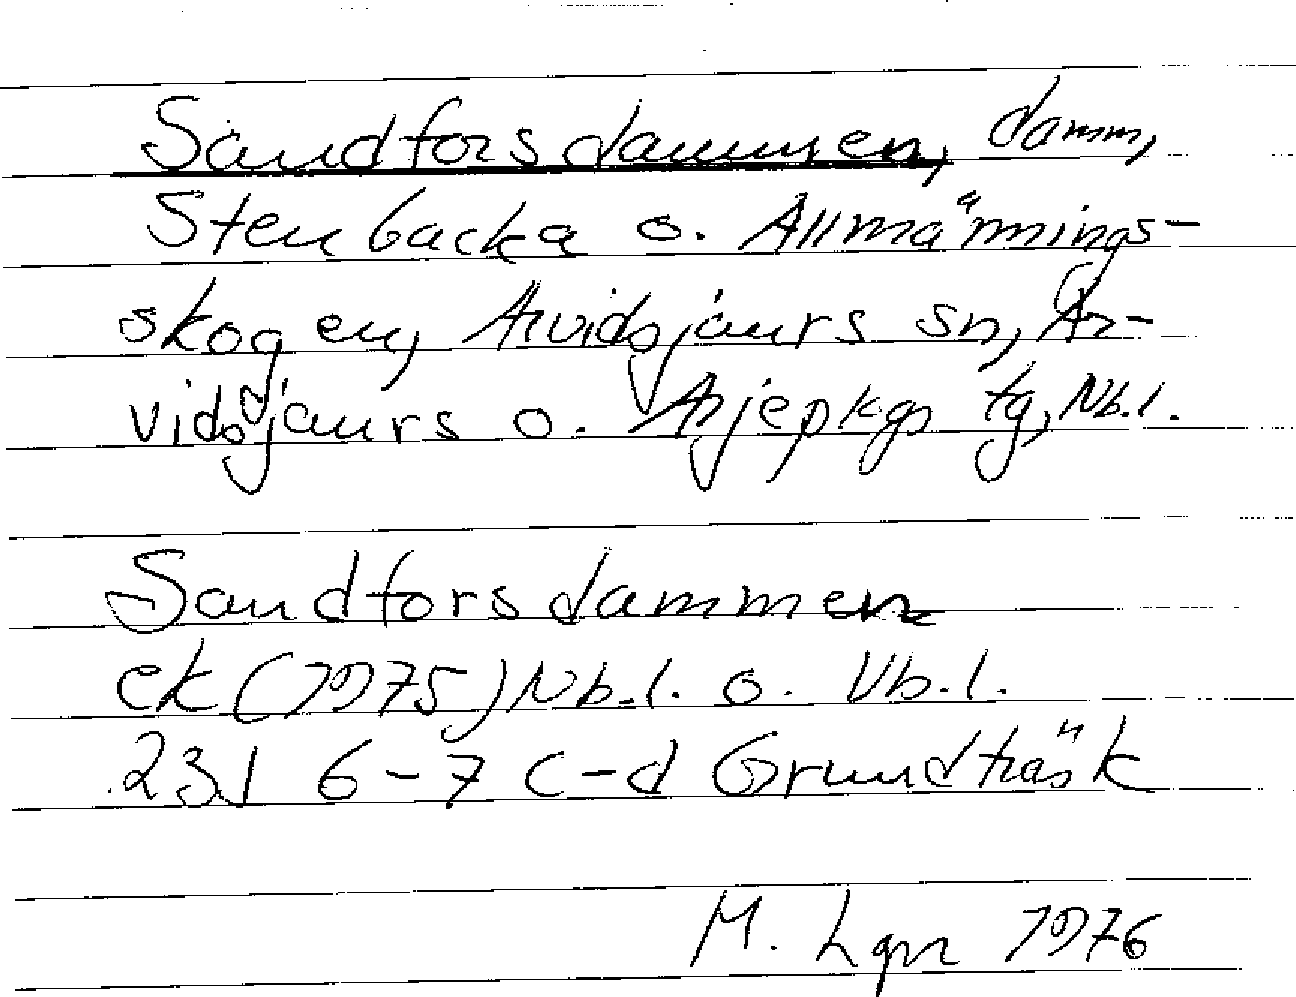 Sandforsdammen, damm,
Stenbacka o. Allmännings-
skogen, Arvidsjaurs sn, Ar-
vidsjaurs o. Arjepkgs tg, Nb.l.
Sandforsdammen
ek (1975) Nb.l. o. Vb.l.
23J 6-7 c-d Grundträsk
M. Lgn 1976